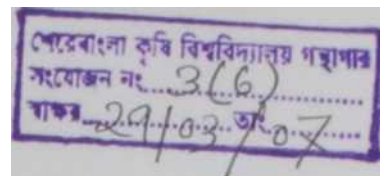 শেরেবাংলা কৃষি বিশ্ববিদ্যালয় গন্থাগার
সংযোজন নং 3(6)
স্বাক্ষর 29/03/ তাং 07